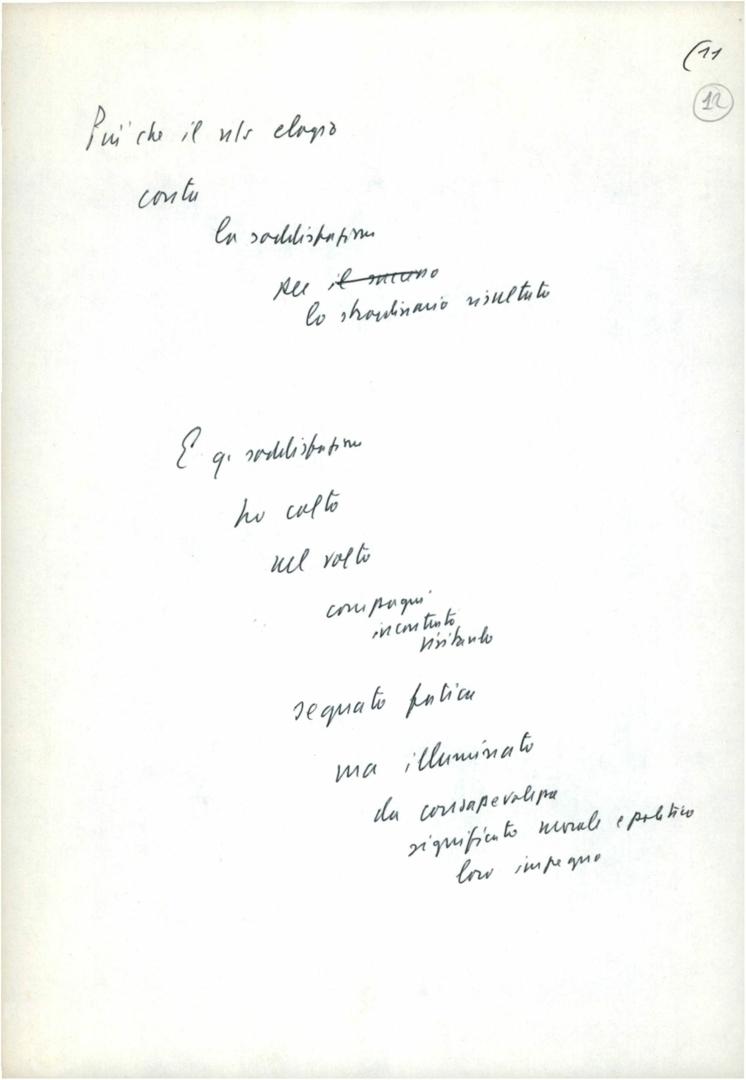 (11
12
Più che il n/s elogio
conta
la soddisfazione
per il successo
lo straordinario risultato
E q. soddisfazione
ho colto
nel volto
compagni
incontrato
visitando
segnato fatica
ma illuminato
da consapevolezza
significato morale e politico
loro impegno